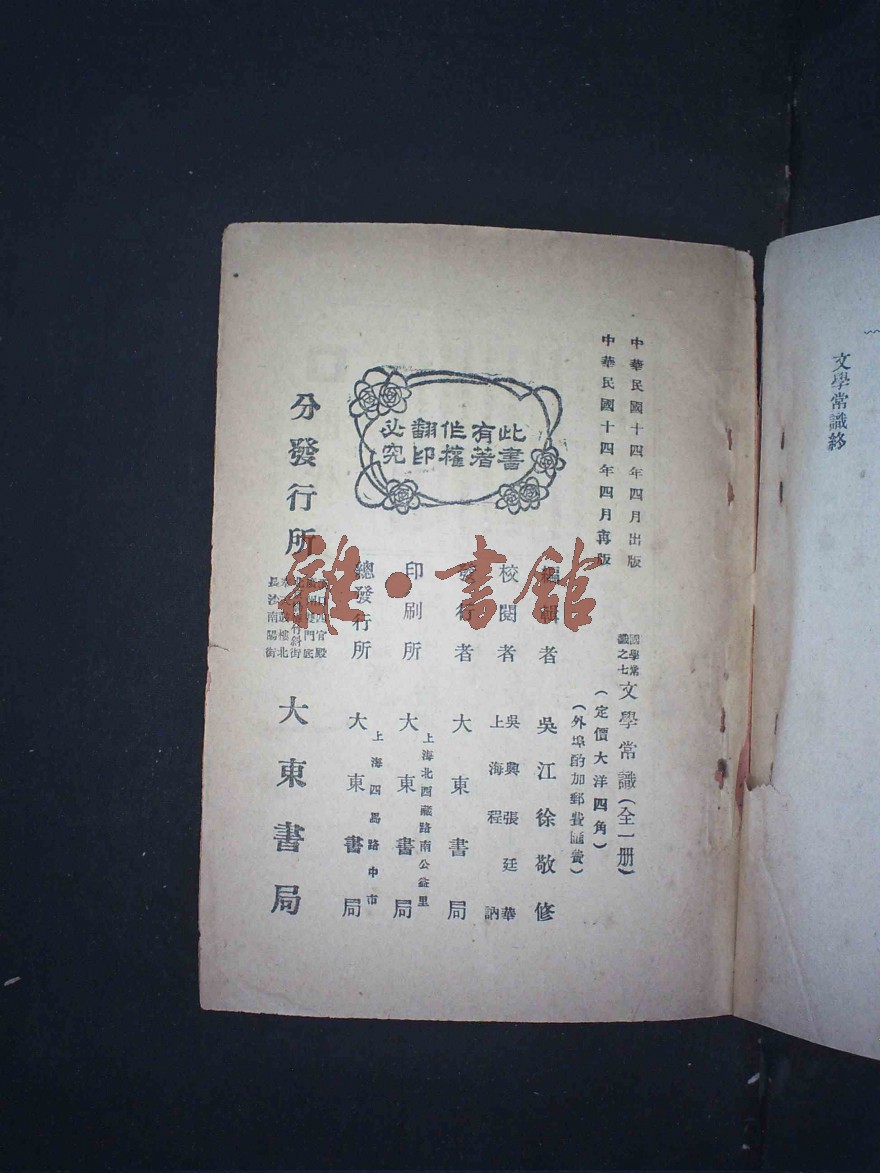 文學常識終
中華民國十四年四月出版
中華民國十四年四月再版
國學常識之七
文學常識(全一册)
(定價大洋四角)
(外埠酌加郵費匯費)
此書
有著
作權
翻印
必究
編輯者 吳江徐敬修
校閱者 吳興張廷華
上海程訥
發行者 大東書局
上海北西藏路南公益里
印刷所 大東書局
上海四馬路中市
總發行所 大東書局
分發行所 大東書局
長沙南陽街
雜·書館